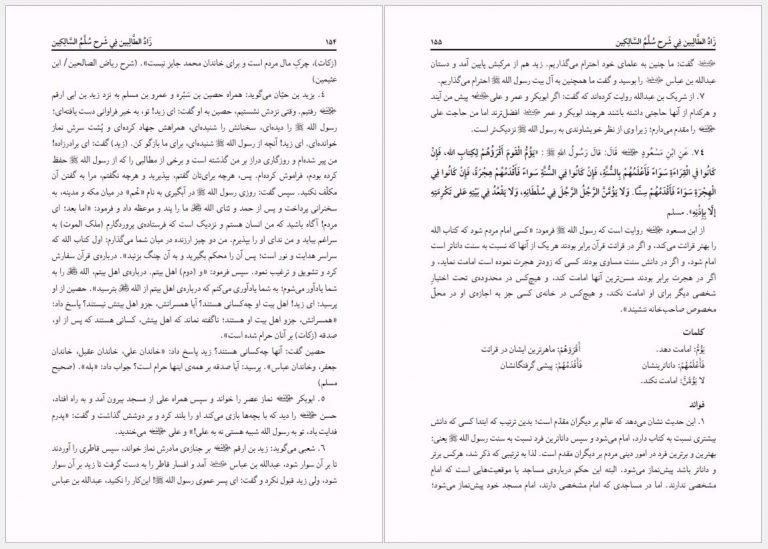 ۱۵۴ زَادُ الطَّالِبِين فِي شَرح سُلَّمُ السَّالِكِين
(زکات)، چرکِ مال مردم است و برای خاندان محمد جایز نیست». (شرح ریاض الصالحین/ ابن
عثیمین)
۴. یزید بن حیّان می‌گوید: همراه حصین بن سَبْره و عمرو بن مسلم به نزد زید بن ابی ارقم
رفتیم. وقتی نزدش نشستیم، حصین به او گفت: ای زید! تو، به خیر فراوانی دست یافته‌ای؛
رسول الله ﷺ را دیده‌ای، سخنانش را شنیده‌ای، همراهش جهاد کرده‌ای و پُشت سرش نماز
خوانده‌ای. ای زید! آنچه از رسول الله ﷺ شنیده‌ای، برای ما بازگو کن. (زید) گفت: ای برادرزاده!
من پیر شده‌ام و روزگاری دراز بر من گذشته است و برخی از مطالبی را که از رسول الله ﷺ حفظ
کرده بودم، فراموش کرده‌ام. پس، هرچه برای‌تان گفتم، بپذیرید و هرچه نگفتم، مرا به گفتن آن
مکلّف نکنید. سپس گفت: روزی رسول الله ﷺ در آبگیری به نام «خُم» در میان مکه و مدینه، به
سخنرانی پرداخت و پس از حمد و ثنای الله ﷻ ما را پند و موعظه داد و فرمود: «اما بعد؛ ای
مردم! آگاه باشید که من انسان هستم و نزدیک است که فرستاده‌ی پروردگارم (ملک الموت) به
سراغم بیاید و من ندای او را بپذیرم. من دو چیز ارزنده در میان شما می‌گذارم: اول کتاب الله که
سراسر هدایت و نور است؛ پس آن را محکم بگیرید و به آن چنگ بزنید». درباره‌ی قرآن سفارش
کرد و تشویق و ترغیب نمود. سپس فرمود: «و (دوم) اهل بیتم. درباره‌ی اهل بیتم، الله ﷻ را به
شما یادآور می‌شوم؛ به شما یادآوری می‌کنم که درباره‌ی اهل بیتم از الله ﷻ بترسید». حصین از او
پرسید: ای زید! اهل بیت او چه‌کسانی هستند؟ آیا همسرانش، جزو اهل بیتش نیستند؟ پاسخ داد:
«همسرانش، جزو اهل بیت او هستند؛ ناگفته نماند که اهل بیتش، کسانی هستند که پس از او،
صدقه (زکات) بر آنان حرام شده است».
حصین گفت: آنها چه‌کسانی هستند؟ زید پاسخ داد: «خاندان علی، خاندان عقیل، خاندان
جعفر، وخاندان عباس». پرسید: آیا صدقه بر همه‌ی اینها حرام است؟ جواب داد: «بله». (صحیح
مسلم)
۵. ابوبکر نماز عصر را خواند و سپس همراه علی از مسجد بیرون آمد و به راه افتاد،
حسن را دید که با بچه‌ها بازی می‌کند او را بلند کرد و بر دوشش گذاشت و گفت: «پدرم
فدایت باد، تو به رسول الله شبیه هستی نه به علی!» و علی می‌خندید.
۶. شعبی می‌گوید: زید بن ارقم بر جنازه‌ی مادرش نماز خواند، سپس قاطری را آوردند
تا بر آن سوار شود، عبدالله بن عباس آمد و افسار قاطر را به دست گرفت تا زید بر آن سوار
شود، ولی زید قبول نکرد و گفت: ای پسر عموی رسول الله ﷺ! این‌کار را نکنید، عبدالله بن عباس
زَادُ الطَّالِبِين فِي شَرح سُلَّمُ السَّالِكِين ۱۵۵
گفت: ما چنین به علمای خود احترام می‌گذاریم. زید هم از مرکبش پایین آمد و دستان
عبدالله بن عباس را بوسید و گفت ما همچنین به آل بیت رسول الله ﷺ احترام می‌گذاریم.
۷. از شریک بن عبدالله روایت کرده‌اند که گفت: اگر ابوبکر و عمر و علی پیش من آیند
و هرکدام از آنها حاجتی داشته باشند هرچند ابوبکر و عمر افضل‌ترند اما من حاجت علی
را مقدم می‌دارم؛ زیرا وی از نظر خویشاوندی به رسول الله ﷺ نزدیک‌تر است.
۷۴. عَنِ ابْنِ مَسْعُودٍ قَالَ: قَالَ رَسُولُ اللهِ ﷺ: «يَؤُمُّ القَومَ أَقْرَؤُهُمْ لِكِتابِ الله، فَإِنْ
كَانُوا فِي القِرَاءَةِ سَوَاءً فَأَعْلَمُهُمْ بِالسُّنَّةِ، فَإِنْ كَانُوا فِي السُّنَّةِ سَوَاءً فَأَقْدَمُهُمْ هِجْرَةً، فَإِنْ كَانُوا فِي
الْهِجْرَةِ سَوَاءً فَأَقْدَمُهُمْ سِنًّا. وَلَا يَؤُمَّنَّ الرَّجُلُ الرَّجُلَ فِي سُلْطَانِهِ، وَلَا يَقْعُدُ فِي بَيْتِهِ عَلَى تَكْرِمَتِهِ
إِلَّا بِإِذْنِهِ». مسلم
از ابن مسعود روایت است که رسول الله ﷺ فرمود: «کسی امام مردم شود که کتاب الله
را بهتر قرائت می‌کند، و اگر در قرائت قرآن برابر بودند هر یک از آنها که نسبت به سنت داناتر است
امام شود، و اگر در دانش سنت مساوی بودند کسی که زودتر هجرت نموده است امامت نماید، و
اگر در هجرت برابر بودند مسن‌ترین آنها امامت کند، و هیچ‌کس در محدوده‌ی تحت اختیارِ
شخصی دیگر برای او امامت نکند، و هیچ‌کس در خانه‌ی کسی جز به اجازه‌ی او در محلّ
مخصوص صاحب‌خانه ننشیند».
کلمات
يَؤُمُّ: امامت دهد. أَقْرَؤُهُمْ: ماهرترین ایشان در قرائت
فَأَعْلَمُهُمْ: داناترینشان فَأَقْدَمُهُمْ: پیشی گرفتگانشان
لا يَؤُمَّنَّ: امامت نکند.
فوائد
۱. این حدیث نشان می‌دهد که عالم بر دیگران مقدم است؛ بدین ترتیب که ابتدا کسی که دانش
بیشتری نسبت به کتاب دارد، امام می‌شود و سپس داناترین فرد نسبت به سنت رسول الله ﷺ یعنی:
بهترین و برترین فرد در امور دینی مردم بر دیگران مقدم است. لذا به ترتیبی که ذکر شد، هرکس برتر
و داناتر باشد پیش‌نماز می‌شود. البته این حکم درباره‌ی مساجد یا موقعیت‌هایی است که امام
مشخصی ندارند. اما در مساجدی که امام مشخصی دارند، امام مسجد خود پیش‌نماز می‌شود؛